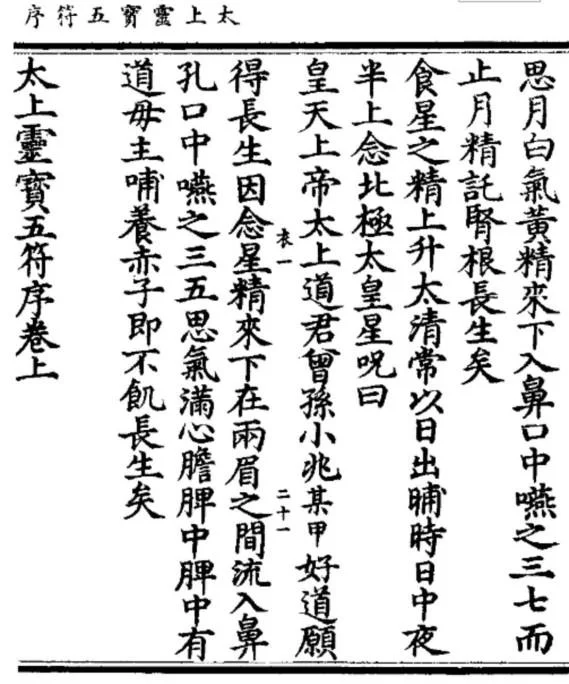 太上靈寶五符序
思月白氣黃精來下入鼻口中嚥之三七而
止月精託腎根長生矣
食星之精上升太清常以日出晡時日中夜
半上念北極太皇星呪曰
皇天上帝太上道君曾孫小兆某甲好道願
衣一 二十一
得長生因念星精來下在兩眉之間流入鼻
孔口中嚥之三五思氣滿心膽脾中脾中有
道母主哺養赤子即不飢長生矣
太上靈寶五符序卷上